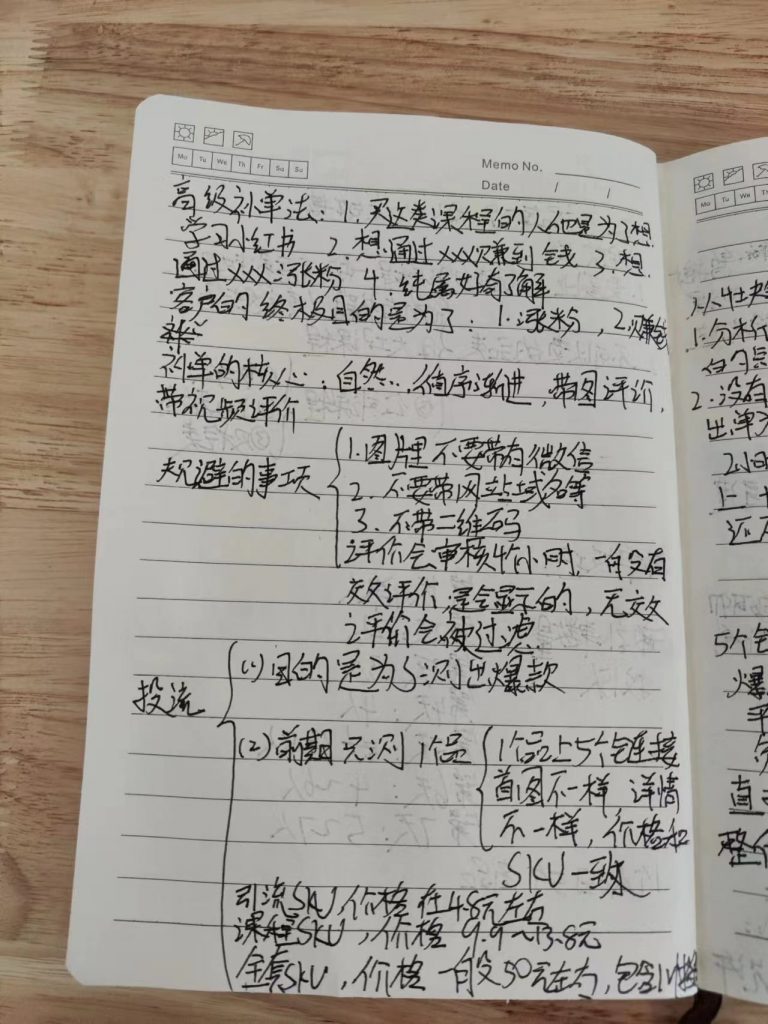 Mo Tu We Th Fr Sa Su
Memo No.
Date / /
高级补单法：1. 买这类课程的人他是为了想
学习小红书 2. 想通过xxx赚到钱 3. 想
通过xxx涨粉 4. 纯属好奇了解
客户的终极目的是为了：1. 涨粉，2. 赚钱
补单的核心：自然..，循序渐进，带图评价，
带视频评价
规避的事项
1. 图片里不要带有微信
2. 不要带网站域名等
3. 不带二维码
评价会审核4个小时，一般没有
效评价是会显示的，无效
评价会被过滤
投流
(1) 目的是为了测出爆款
(2) 前期 先测1个品
1个品上5个链接
首图不一样 详情
不一样，价格和
SKU一致
引流SKU，价格在4.8元左右
课程SKU，价格 9.9~13.8元
全套SKU，价格一般50元左右，包含
Mo Tu We Th
1. 分析
2. 没有
出单
2小时
5个链
爆
平
直
整个